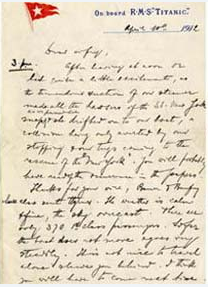 On board R·M·S "TITANIC."
April 10th 1912
3 pm.
After leaving at noon we
had quite a little excitement, as
the tremendous suction of our steamer
made all the hawsers of the SS. New York
snap & she drifted onto our boat, a
collision being only averted by our
stopping & our tugs coming to the
rescue of the "New York". You will probably
have read the in the papers.
Thanks for your wire,
The weather is calm
& fine, the sky overcast. There are
only 370 1st class passengers. So far
the boat does not move & goes very
steadily. It is not nice to travel
alone & leave you behind. I think
you will have to come next time.